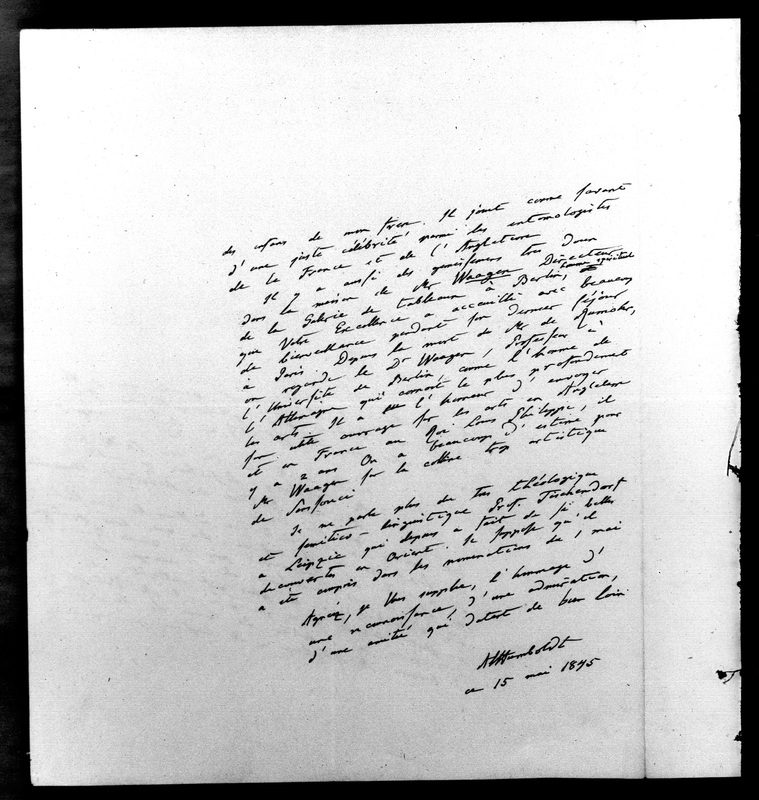 des enfans de mon frere. Il jouit comme savant
d'une juste célébrité parmi les entomologistes
de la France et de l'Angleterre
Il y a aussi des
dans la mission de Mr Waagen Directeur
de la Galerie de tableaux à Berlin, homme spirituel
que Votre Excellence a accueilli avec beaucoup
de bienveillance pendant son dernier séjour
à Paris. Depuis la mort de Mr de Rumohr,
on regarde le Dr Waagen, Professeur à
l'Université de Berlin, comme l'homme de
l'Allemagne qui connoit le plus profondement
les arts. Il a eu l'honneur d'envoyer
son utile ouvrage sur les arts en Angleterre
et en France au Roi Louis Philippe, il
y a 2 ans On a beaucoup d'estime pour
Mr Waagen sur la colline trop artistique
de Sans souci
Je ne parle plus de très théologique
et linguistique Prof. Tischendorf
a Leipzig qui depuis a fait de si belles
decouvertes en Orient. Je suppose qu'il
a été compris dans les nominations de 1 mai
Agréez, je Vous supplie, l'hommage d'
une reconnoissance, d'une admiration,
d'une amitié qui datent de bien loin
AlHumboldt
ce 15 mai 1845